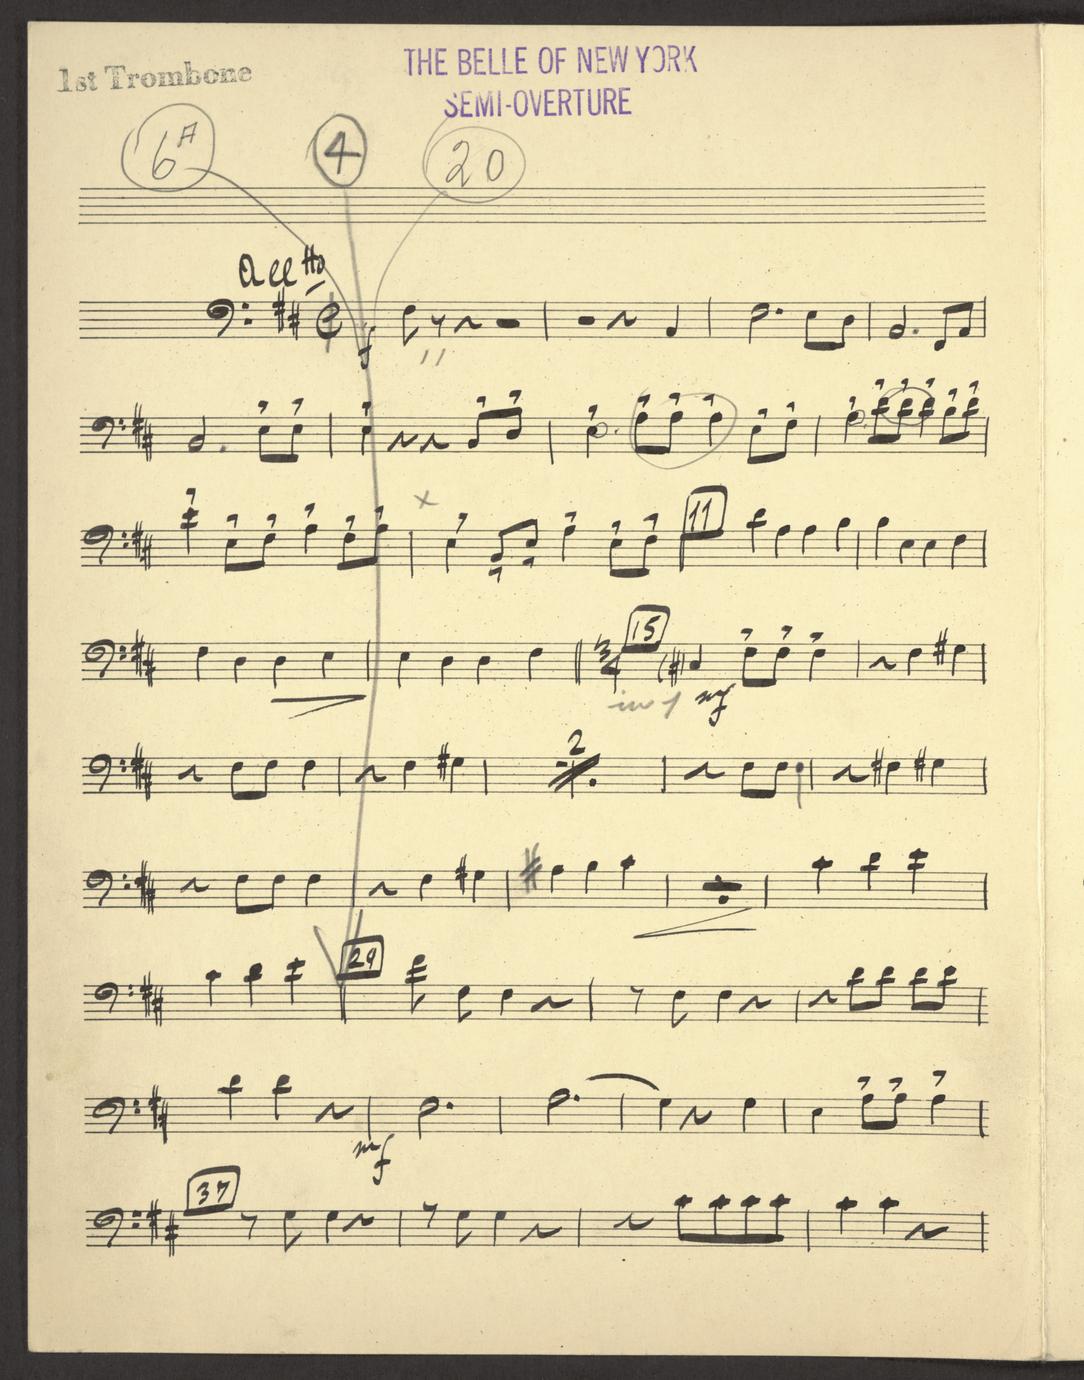 1st Trombone
THE BELLE OF NEW YORK
SEMI-OVERTURE
6A 4 20
Alltto
f
11
15
3/4
in 1 mf
2
29
mf
37